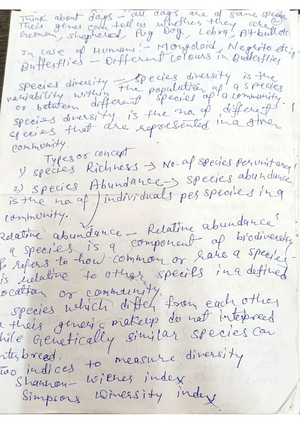 Think about dogs - all dogs are of same species
Their genes can tell us whether they are
German, shepherd, Pug Dog, Lebra, Pitbull etc
In case of Humans:- Mongoloid, Negrito etc
Butterflies - Different colours in Butterflies
Species diversity - Species diversity is the
variability within the population of a species
or between different species of a community.
Species diversity is the no. of different
species that are represented in a given
community.
Types or concept
1) Species Richness → No. of species per unit area
2) Species Abundance → species abundance
is the no. of individuals per species in a
community.
Relative abundance - Relative abundance
a species is a component of biodiversity
refers to how common or rare a species
is relative to other species in a defined
location or community.
Species which differ from each other
in their genetic makeup do not interbreed
while Genetically similar species can
interbreed.
Two indices to measure diversity
Shannon - Wiener index
Simpsons Diversity index